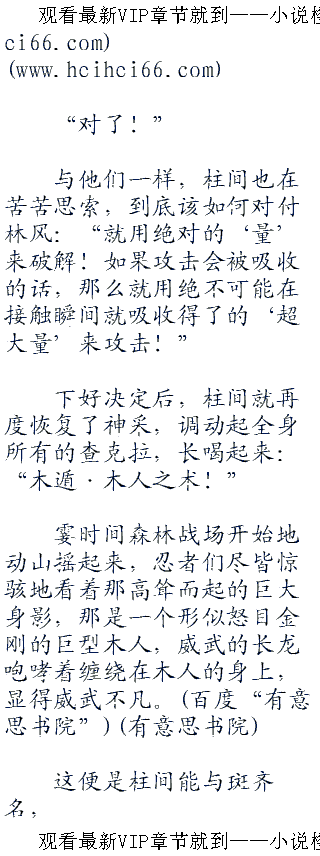 观看最新VIP章节就到——小说楼
ci66.com)
(www.hcihci66.com)
“对了！”
与他们一样，柱间也在
苦苦思索，到底该如何对付
林风：“就用绝对的‘量’
来破解！如果攻击会被吸收
的话，那么就用绝不可能在
接触瞬间就吸收得了的‘超
大量’来攻击！”
下好决定后，柱间就再
度恢复了神采，调动起全身
所有的查克拉，长喝起来：
“木遁·木人之术！”
霎时间森林战场开始地
动山摇起来，忍者们尽皆惊
骇地看着那高耸而起的巨大
身影，那是一个形似怒目金
刚的巨型木人，威武的长龙
咆哮着缠绕在木人的身上，
显得威武不凡。(百度“有意
思书院”)(有意思书院)
这便是柱间能与斑齐
名，
观看最新VIP章节就到——小说